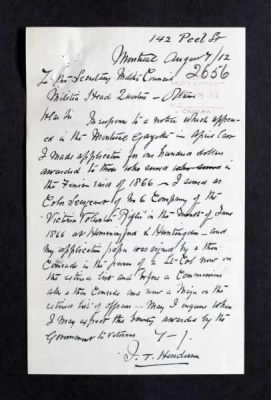 142 Peel St
Montreal August 7/12
2656
To the Secretary Militia Council
Militia Head Quarters – Ottawa
In response to a notice which appear-
ed in the Montreal Gazette in April last
I made application for one hundred dollars
awarded to those who served
in the Fenian raid of 1866 – I served as
Color Sergeant of No 6 Company of the
Victoria Volunteer Rifles in the month of June
1866 at Hemmingford & Huntingdon – and
my application paper was signed by a then
Comrade in the person of a Lt-Col now on
the retired list and before a Commissioner
also a then Comrade and now a Major on the
retired list of officers – May I inquire when
I may expect the bounty awarded by the
Government to Veterans
J. T. Henderson